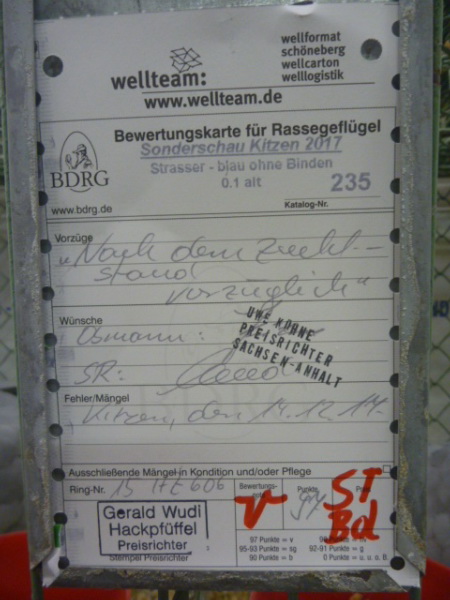 wellteam:
wellformat
schöneberg
wellcarton
welllogistik
www.wellteam.de
Bewertungskarte für Rassegeflügel
Sonderschau Kitzen 2017
Strasser - blau ohne Binden
0.1 alt
235
BDRG
www.bdrg.de
Katalog-Nr.
Vorzüge
„Nach dem Zucht-
stand
vorzüglich“
Wünsche
Obmann:
UWE KÜHNE
PREISRICHTER
SACHSEN-ANHALT
SR:
Fehler/Mängel
Kitzen, den 14.12.17.
Ausschließende Mängel in Kondition und/oder Pflege
Ring-Nr. 15
606
Bewertungs-
v
Punkte
97
ST
Bd
Gerald Wudi
Hackpfüffel
Preisrichter
Stempel Preisrichter
97 Punkte = v
95-93 Punkte = sg
92-91 Punkte = g
90 Punkte = b
0 Punkte = u. u.o.B.